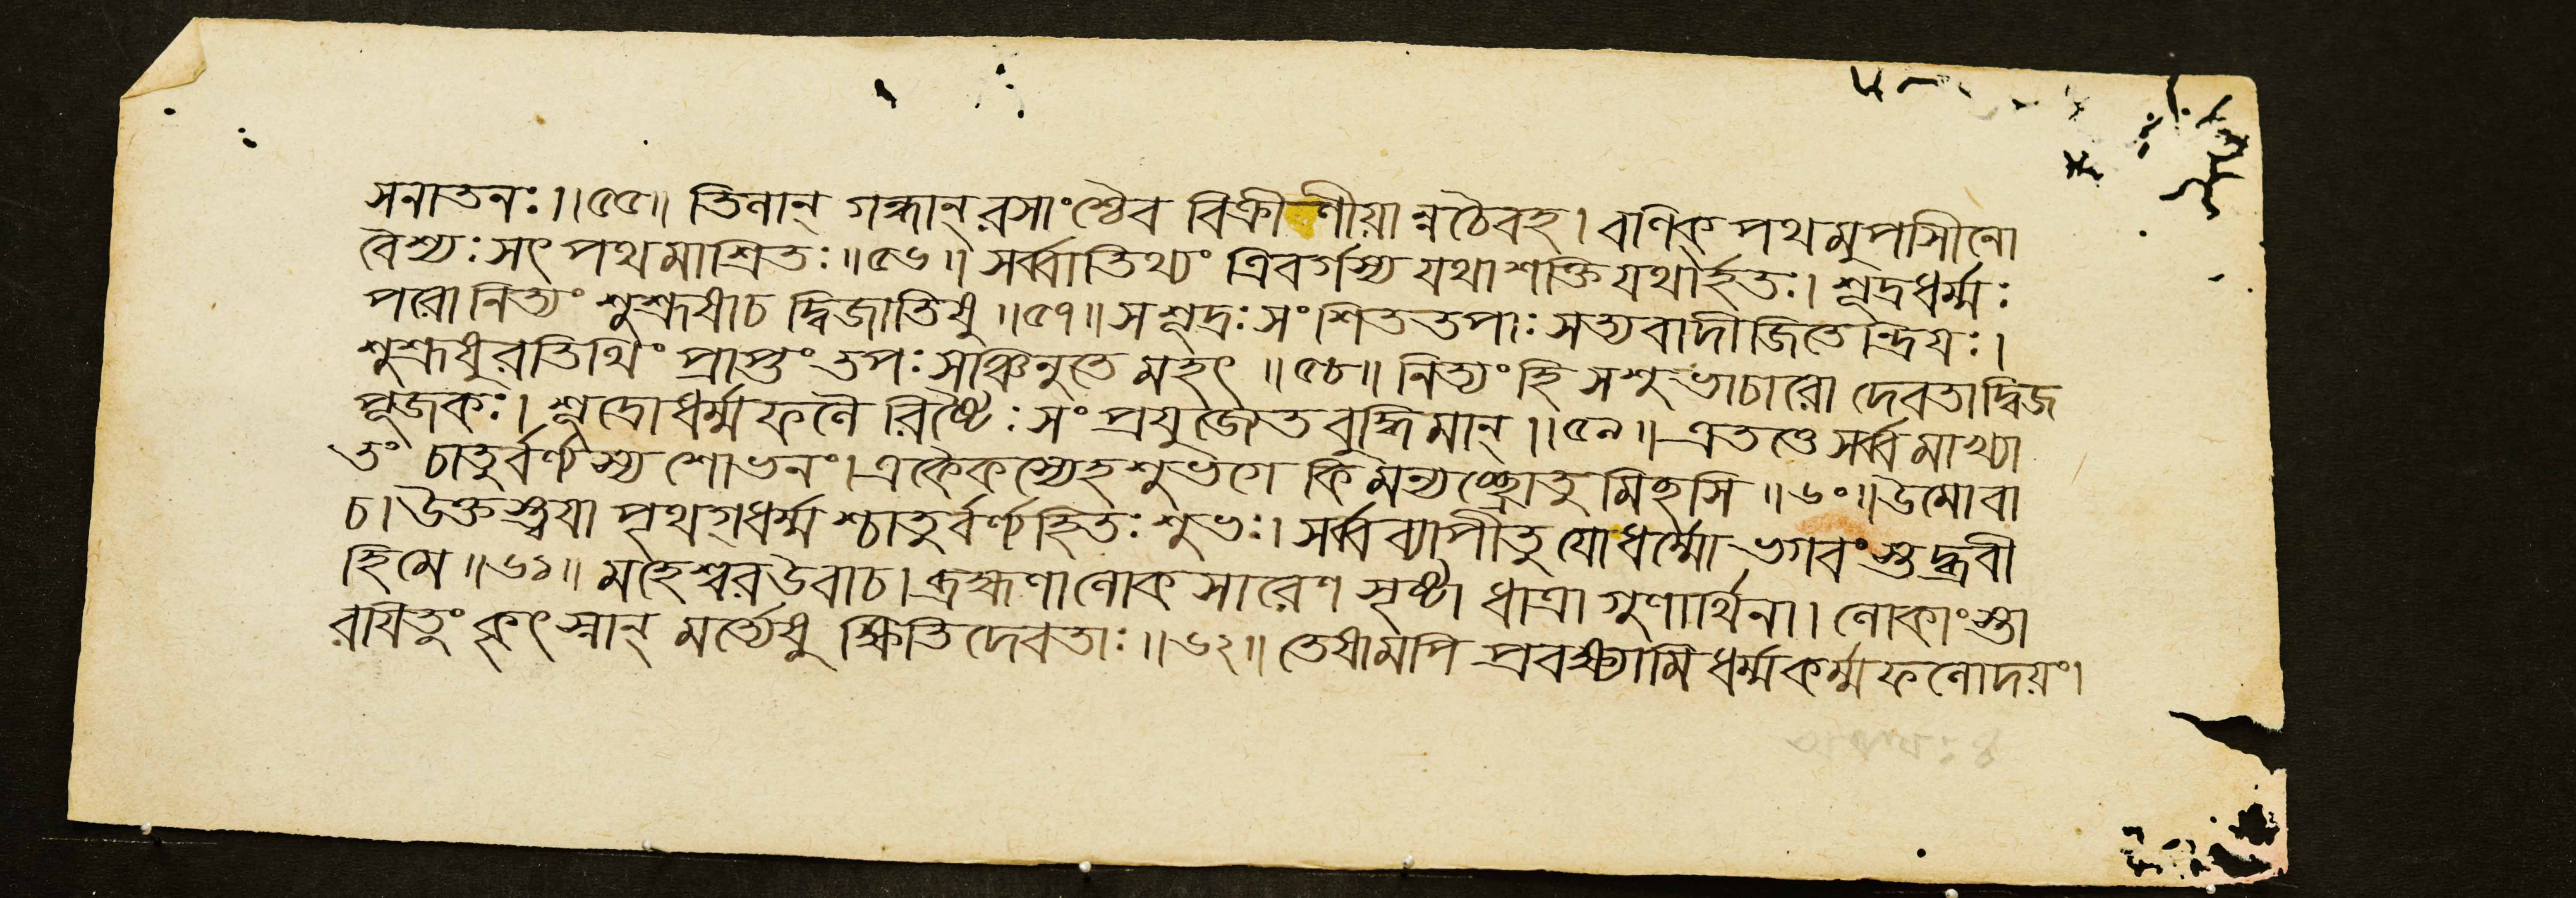 সনাতনঃ।।৫৫॥ তিলান্ গন্ধান্ রসাংশ্চৈব বিক্রীণীয়ান্নচৈবহ। বণিক্ পথমুপাসীনো
বৈশ্যঃ সৎ পথমাশ্রিতঃ॥৫৬॥ সর্ব্বাতিথ্যং ত্রিবর্গস্য যথাশক্তি যথার্হতঃ। শূদ্রধর্ম্মঃ
পরো নিত্যং শুশ্রূষাচ দ্বিজাতিষু॥৫৭॥ স শূদ্রঃ সংশিততপাঃ সত্যবাদী জিতেন্দ্রিযঃ।
শুশ্রূষুরতিথিং প্রাপ্তং তপঃ সঞ্চিনুতে মহৎ ॥৫৮॥ নিত্যং হি স শুভাচারো দেবতাদ্বিজ
পূজকঃ। শূদ্রো ধর্ম্মফলৈরিষ্টৈঃ সংপ্রযুজ্যেত বুদ্ধিমান্।।৫৯॥ এতত্তে সর্ব্বমাখ্যা
তং চাতুর্বর্ণ্যস্য শোভনং। একৈকস্যেহ শুভগে কিমন্যচ্ছ্রোতুমিহসি॥৬০॥ উমোবা
চ। উক্তস্ত্বযা পৃথগ্ধর্ম্মশ্চাতুর্বর্ণ্যহিতঃ শুভঃ। সর্ব্বব্যাপীতু যো ধর্ম্মো ভগবংস্তদ্ব্রবী
হিমে॥৬১॥ মহেশ্বরউবাচ। ব্রহ্মণা লোকসারেণ সৃষ্টা ধাত্রা গুণার্থিনা। লোকাংস্তা
রাযিতুং কৃৎস্নান্ মর্ত্ত্যেষু ক্ষিতিদেবতাঃ।।৬২॥ তেষামপি প্রবক্ষ্যামি ধর্ম্মকর্ম্মফলোদয়ং।